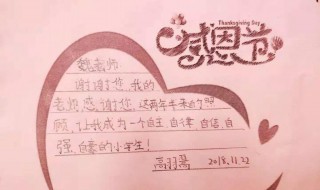 Thanksgiving Day
感恩节
魏老师
谢谢您,我的
老师,感谢您,这两年半来的照
顾,让我成为一个自主,自律,自信,自
强,自尊的小学生!
高羽
2018.11.22